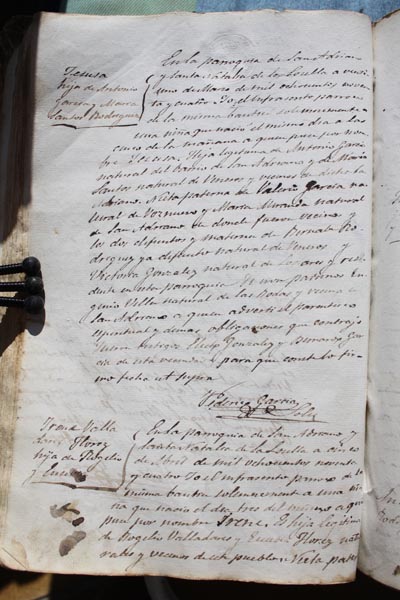 Teresa
hija de Antonio
Garcia y Maria
Santos Rodriguez
En la parroquia de San Adriano
y Santa Natalia de la Losilla a veinti
uno de Marzo de mil ochocientos noven
ta y cuatro. Yo el infrascrito parroco
de la misma bautice solemnemente a
una niña que nació el mismo dia a las
cinco de la mañana a quien puse por nom
bre Teresa. Hija legitima de Antonio Garcia
natural del barrio de San Adriano y de Maria
Santos natural de Veneros y vecinos de dicho San
Adriano. Nieta paterna de Valerio Garcia na
tural de Vozmuevo y Maria Miranda natural
de San Adriano de donde fueron vecinos y
los dos difuntos y materna de Bernabe Ro
driguez ya difunto natural de Veneros y
Victoria Gonzalez natural de y resi
dente en esta parroquia. Fueron padrinos Eu
genio Villa natural de las Bodas y vecino de
San Adriano a quien adverti el parentesco
espiritual y demas obligaciones que contrajo
fueron testigos Gonzalez y Gar
cia de esta vecindad y para que conste lo fir
mo fecha ut supra
Federico Garcia
Irene Valla
dares Florez
hija de Rogelio
y
En la parroquia de San Adriano y
Santa Natalia de la Losilla a cinco
de Abril de mil ochocientos noventa
y cuatro Yo el infrascrito parroco de la
misma bautice solemnemente a una ni
ña que nació el dia tres del mismo a quien
puse por nombre Irene. Es hija legitima
de Rogelio Valladares y Florez natu
rales y vecinos de este pueblo. Nieta pater